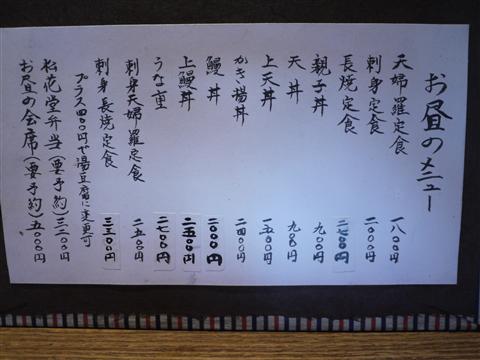 お昼のメニュー
天婦羅定食 一八〇〇円
刺身定食 二〇〇〇円
長焼定食 二七〇〇円
親子丼 九〇〇円
天丼 九〇〇円
上天丼 一五〇〇円
かき揚丼
鰻丼 二〇〇〇円
上鰻丼 二五〇〇円
うな重 二七〇〇円
刺身天婦羅定食 二五〇〇円
刺身長焼定食 三三〇〇円
プラス四〇〇円で湯豆腐に変更可
松花堂弁当(要予約)三二〇〇円
お昼の会席(要予約)五〇〇〇円